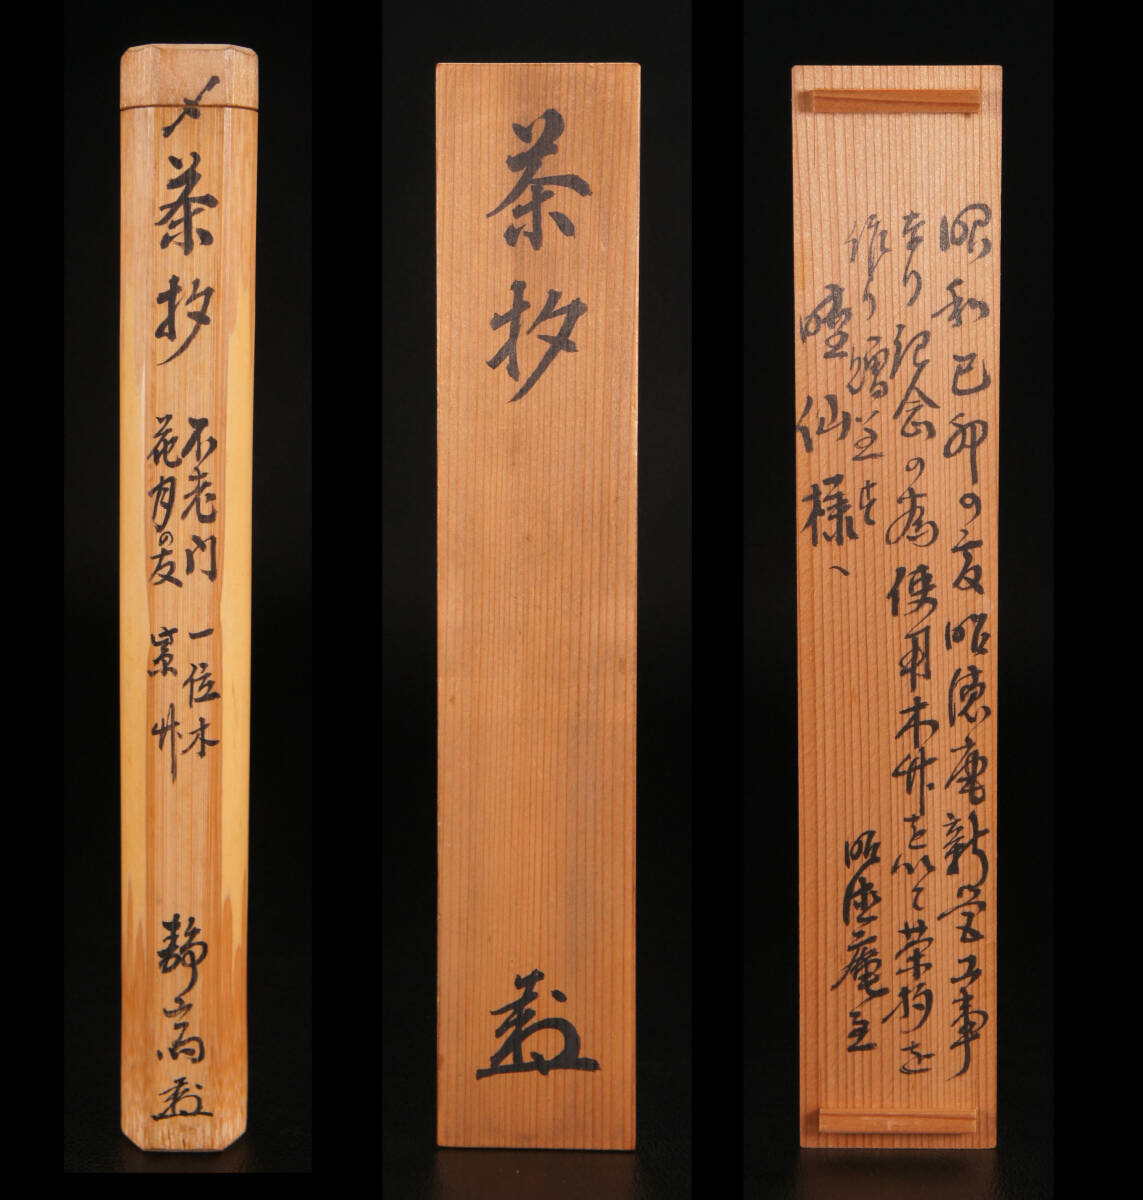 〆
茶杓
不老門 一位木
花月の友 紫竹
静高
茶杓
昭和己卯の夏昭徳庵新営工事
有り記念の為使用木竹を以て茶杓を
作り贈呈す
仙様へ
昭徳庵主